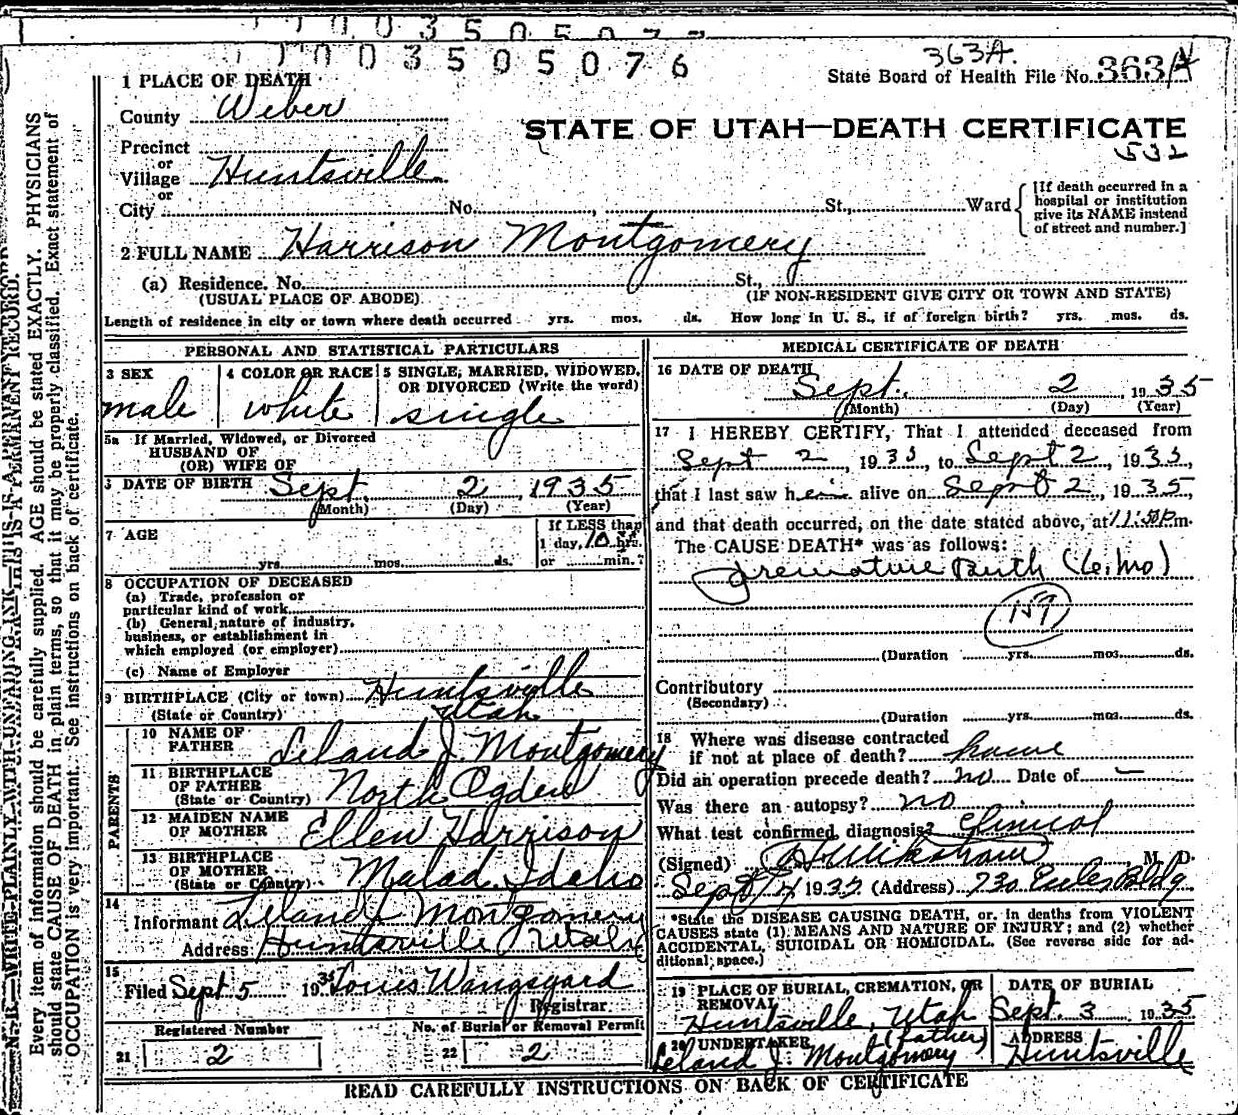 1003505076
363A.
State Board of Health File No. 363A
1 PLACE OF DEATH
County Weber
STATE OF UTAH—DEATH CERTIFICATE
532
Precinct
or
Village Huntsville
or
City No. , St., Ward
[If death occurred in a hospital or institution give its NAME instead of street and number.]
2 FULL NAME Harrison Montgomery
(a) Residence. No. St.,
(USUAL PLACE OF ABODE) (IF NON-RESIDENT GIVE CITY OR TOWN AND STATE)
Length of residence in city or town where death occurred yrs. mos. ds. How long in U. S., if of foreign birth? yrs. mos. ds.
PERSONAL AND STATISTICAL PARTICULARS
3 SEX
male
4 COLOR OR RACE
white
5 SINGLE, MARRIED, WIDOWED, OR DIVORCED (Write the word)
single
5a If Married, Widowed, or Divorced
HUSBAND OF
(OR) WIFE OF
DATE OF BIRTH Sept. 2, 1935
(Month) (Day) (Year)
7 AGE
yrs. mos. ds.
If LESS than
1 day, 10 hrs.
or min.?
8 OCCUPATION OF DECEASED
(a) Trade, profession or
particular kind of work
(b) General nature of industry,
business, or establishment in
which employed (or employer)
(c) Name of Employer
9 BIRTHPLACE (City or town) Huntsville
(State or Country) Utah
PARENTS
10 NAME OF
FATHER Leland J. Montgomery
11 BIRTHPLACE
OF FATHER North Ogden
(State or Country)
12 MAIDEN NAME
OF MOTHER Ellen Harrison
13 BIRTHPLACE
OF MOTHER Malad, Idaho
(State or Country)
14
Informant Leland J Montgomery
Address Huntsville Utah
15
Filed Sept 5 1935 Louis Wangsgard
Registrar
Registered Number No. of Burial or Removal Permit
21 2 22 2
MEDICAL CERTIFICATE OF DEATH
16 DATE OF DEATH
Sept. 2, 1935
(Month) (Day) (Year)
17 I HEREBY CERTIFY, That I attended deceased from
Sept 2, 1935, to Sept 2, 1935,
that I last saw him alive on Sept 2, 1935,
and that death occurred, on the date stated above, at m.
The CAUSE DEATH* was as follows:
Premature Birth (6 mo)
159
(Duration yrs. mos. ds.
Contributory
(Secondary)
(Duration yrs. mos. ds.
18 Where was disease contracted
if not at place of death? home
Did an operation precede death? no Date of —
Was there an autopsy? no
What test confirmed diagnosis? Clinical
(Signed) M. D.
Sept 1935 (Address) 730 Eccles Bldg
*State the DISEASE CAUSING DEATH, or in deaths from VIOLENT
CAUSES state (1) MEANS AND NATURE OF INJURY; and (2) whether
ACCIDENTAL, SUICIDAL OR HOMICIDAL. (See reverse side for ad-
ditional space.)
19 PLACE OF BURIAL, CREMATION, OR
REMOVAL
Huntsville, Utah
DATE OF BURIAL
Sept. 3 1935
20 UNDERTAKER (father)
Leland J. Montgomery
ADDRESS
Huntsville
READ CAREFULLY INSTRUCTIONS ON BACK OF CERTIFICATE
N. B.—WRITE PLAINLY WITH UNFADING INK—THIS IS A PERMANENT RECORD.
Every item of information should be carefully supplied. AGE should be stated EXACTLY. PHYSICIANS
should state CAUSE OF DEATH in plain terms, so that it may be properly classified. Exact statement of
OCCUPATION is very important. See instructions on back of certificate.